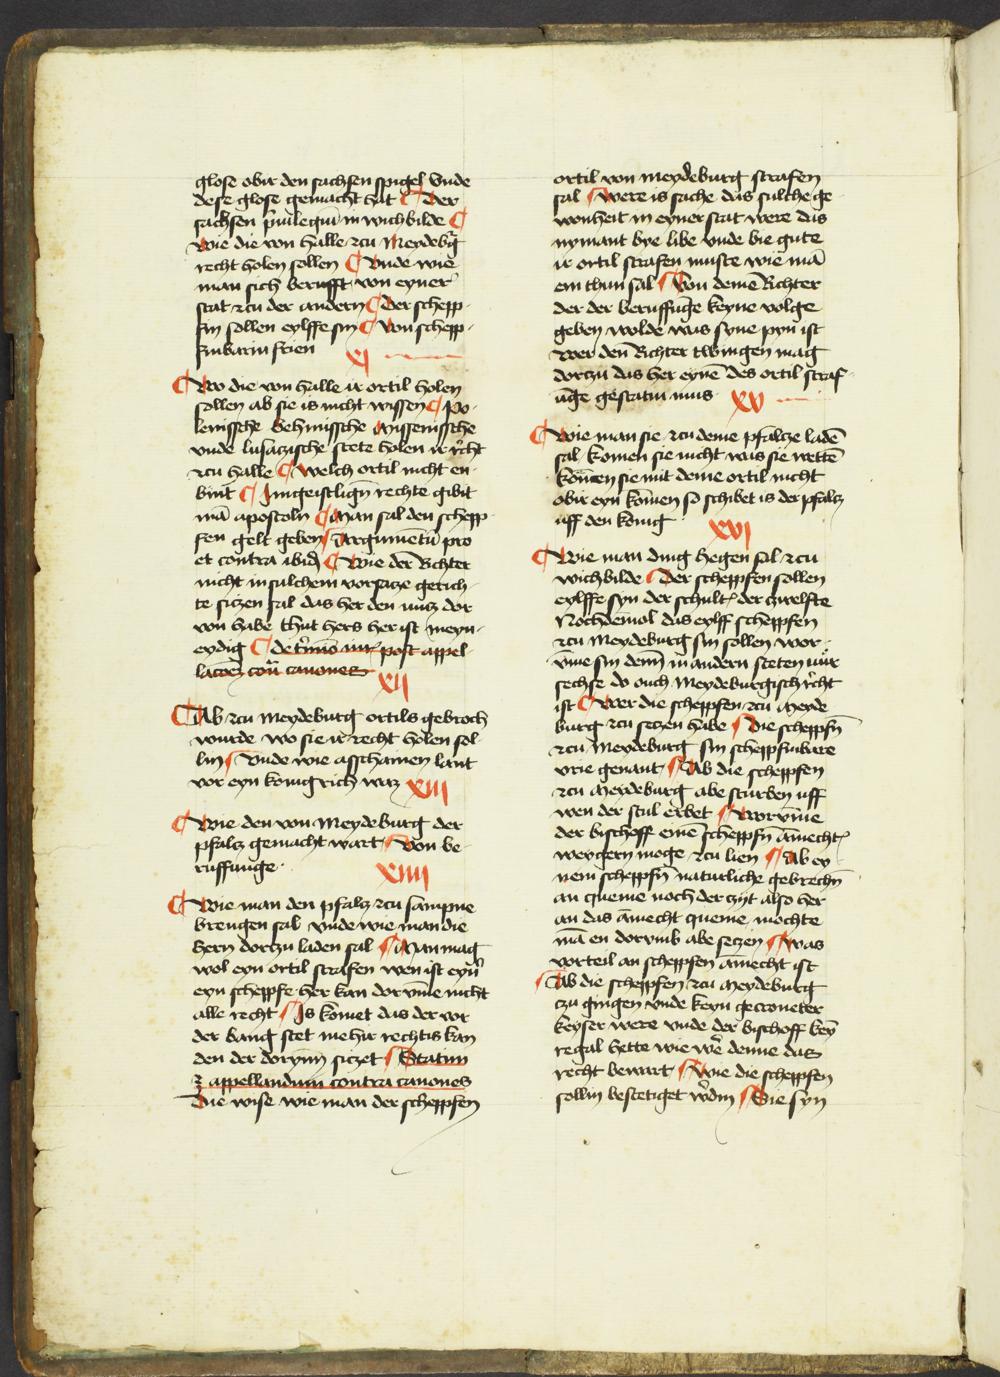 glose obir den sachsen spigel Unde
dese glose gemacht hat ¶ Der
sachsen priuilegiū in wichbilde ¶
Wie die von Halle zcu Meydeb͛g
recht holen sollen ¶ Unde wie
man sich berufft von eyner
stat zcu der andern ¶ Der schepp-
fin sollen eylffe sin ¶ Von schepp-
finbarin frien xi
¶ Wo die von Halle ir ortil holen
sollen ab sie is nicht wissen ¶ Po-
lenissche Behmissche Missenissche
vnde lusaczische stete holen ir r͛cht
zcu halle ¶ Welch ortil nicht en-
bint ¶ In geistlign̄ rechte gibit
mā apostoln ¶ Man sal den schepp
fen gelt geben ¶ Argumētū pro
et contra ibid̄ ¶ Wie der Richter
nicht in sulchem vorsacze gerich-
te siczen sal das her den nucz dor
von habe thut hers her ist meyn-
eydig ¶ de t͛mīs iur͛ post appel-
lac̄oēz cōn̄ canones
xii
¶ Ab zcu Meydeburg ortils gebroch
wurde wo sie ir recht holen sol-
lin ¶ Unde wie asschanien lant
vor eyn konigrich waz xiii
¶ Wie den von Meydeburg der
pfalcz gemacht wart ¶ Von be-
ruffunge xiiii
¶ Wie man den pfalcz zcu sampne
brengen sal vnde wie man die
hern dorczu laden sal ¶ Man mag
wol eyn ortil strafen wen ist eyn͛
eyn scheppfe her kan dor v̄me nicht
alle recht ¶ Is komet das der vor
der bang stet mehir rechtis kan
den der dorynn siczet ¶ Statim
ꝫ appellandum contra canones
Die wise wie man der scheppfen
ortil von Meyd͛burg strafen
sal ¶ Were is sache das sulche ge
wonheit in eyner stat were das
nymant bye libe vnde bie gute
ir ortil strafen muste wie mā
em thun sal ¶ Von demē Richter
der der beruffūge keyne volge
geben wolde was syne pyn ist
Wer den Richter twingen mag
dorczu das her eyne des ortil straf-
ūge gestatin mus xv
¶ Wie man sie zcu deme pfalcze ladē
sal komen sie nicht was sie wettē
kom̄en sie mit deme ortil nicht
obir eyn kom̄en so schibet is der pfalcz
uff den konig
xvi
¶ Wie man ding hegen sal zcu
wichbilde ¶ Der scheppfen sollen
eylffe syn der schult͛ der zwelfte
Nochdemol das eylff scheppfen
zcu Meydeburg sin sollen wor-
v̄me sin denn̄ in andern steten nuer
sechse do ouch Meydeburgisch r͛cht
ist ¶ Wer die scheppfen zcu Meyde
burg zcu seczen habe ¶ Die scheppfn̄
zcu Meydeburg sin scheppfinbare
vrie genant ¶ Ab die scheppfen
zcu Meydeburg abe sturben uff
wen der stul erbet ¶ Worv̄me
der bischoff eime scheppfn̄ āmecht͛
weygern moge zcu lien ¶ Ab ey
nem scheppfn̄ naturliche gebrechn̄
an queme noch der czyt also her
an das āmecht queme mochte
mā en dorumb abe seczen ¶ Was
vorteil an scheppfen āmecht ist
¶ Ab die scheppfen zcu Meydeburg
czu gingen vnde keyn gecroneter
keyser were vnde der bischoff keȳ
regal hette wie we͛ denne das
recht bewart ¶ Wie die scheppfen
sollin bestetiget w͛din ¶ Sie syn